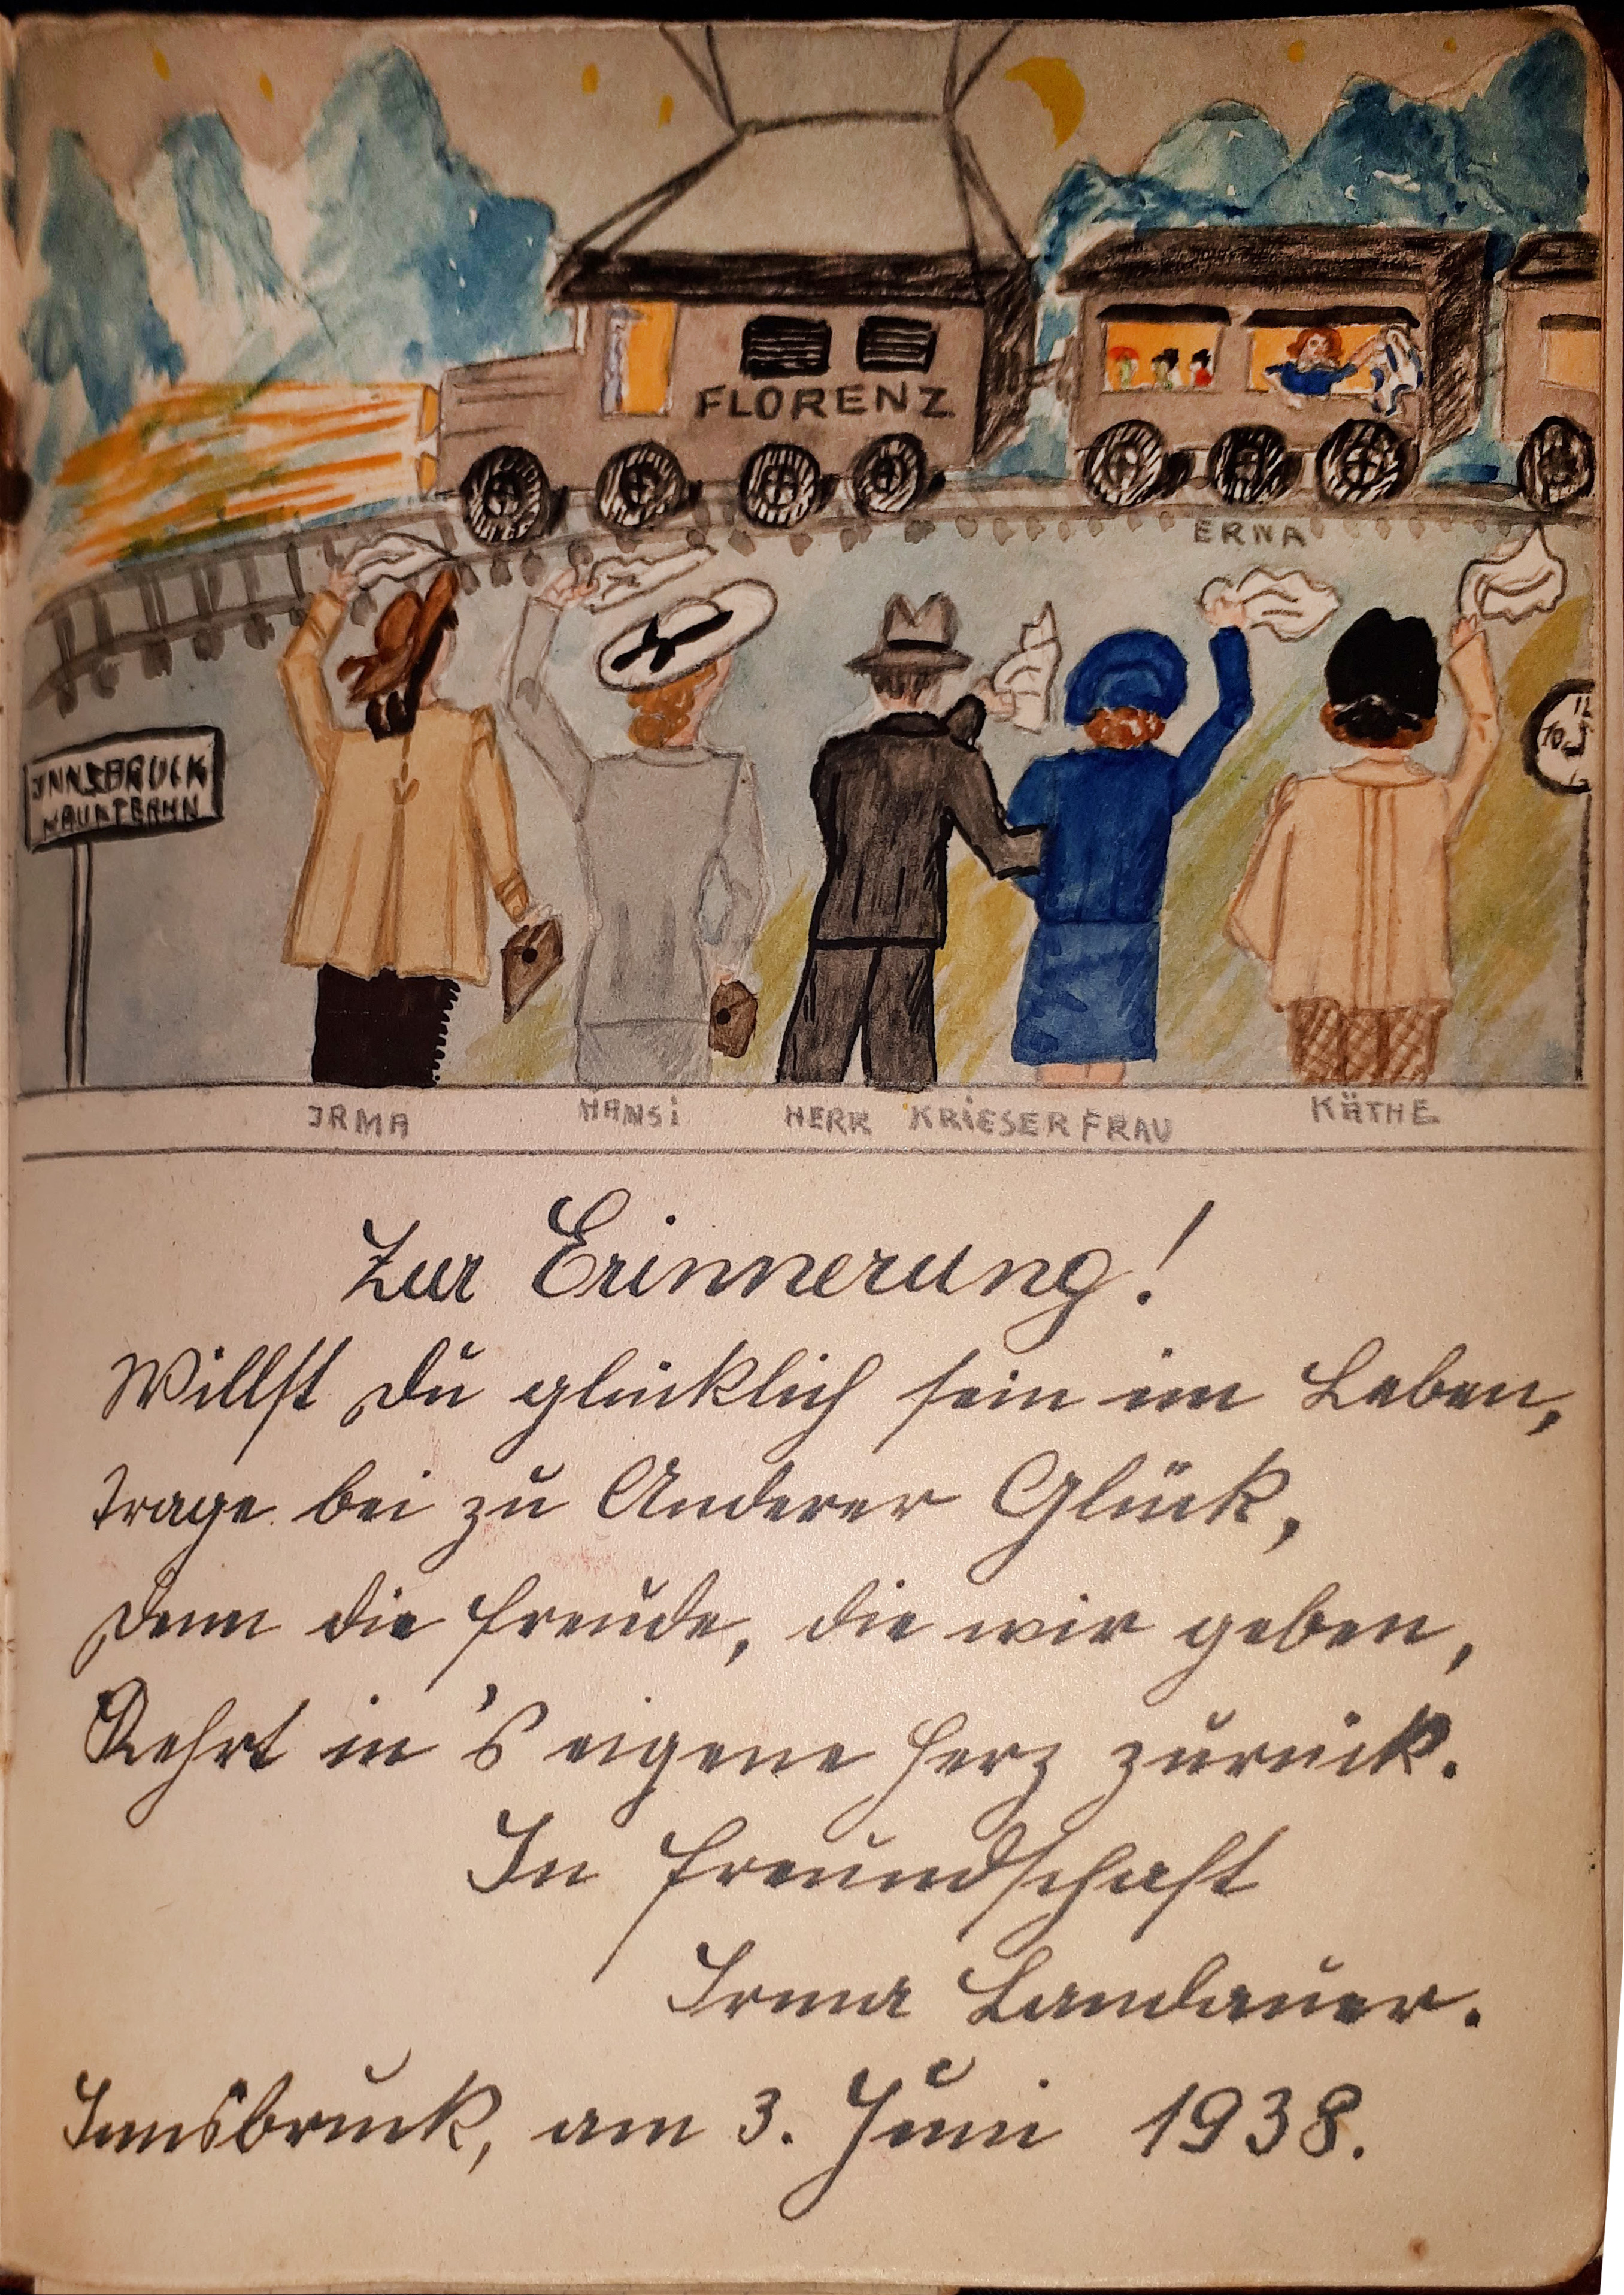 FLORENZ
ERNA
INNSBRUCK
HAUPTBAHN
12
10
IRMA HANSI HERR KRIESER FRAU KÄTHE
Zur Erinnerung!
Willst Du glücklich sein im Leben,
trage bei zu Anderer Glück,
Denn die Freude, die wir geben,
Kehrt in's eigene Herz zurück.
In Freundschaft
Irma Landauer.
Innsbruck, am 3. Juni 1938.